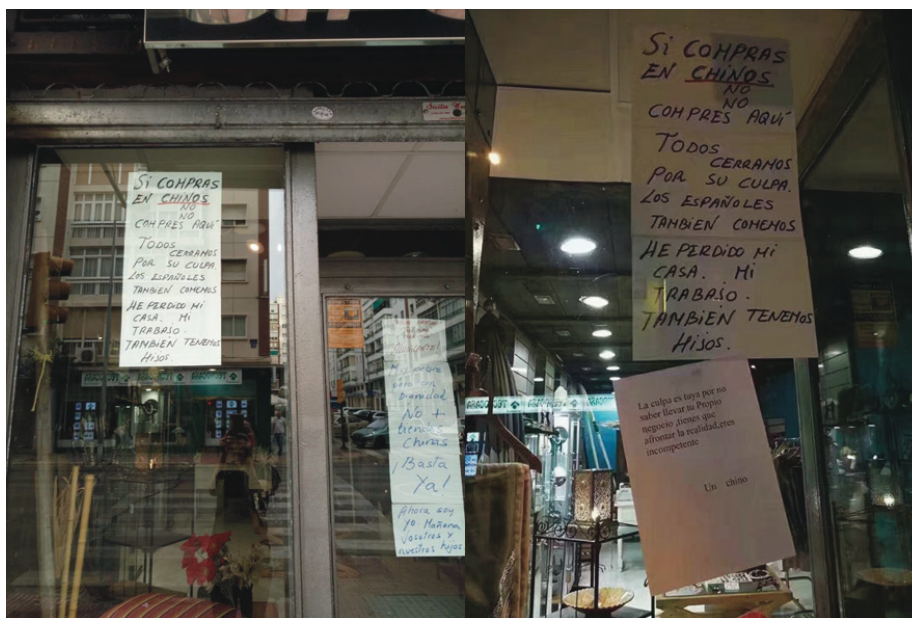 Si COMPRAS
EN CHINOS
NO
NO
COMPRES AQUÍ
TODOS
CERRAMOS
POR SU CULPA.
LOS ESPAÑOLES
TAMBIEN COMEMOS
HE PERDIDO MI
CASA. MI
TRABAJO.
TAMBIEN TENEMOS
HiJOS.
pero con
Dignidad
No +
tiendas
Chinas
¡Basta
Ya!
Ahora soy
yo Mañana
Vosotros y
nuestros hijos
Si COMPRAS
EN CHINOS
NO
NO
COMPRES AQUÍ
TODOS
CERRAMOS
POR SU CULPA.
LOS ESPAÑOLES
TAMBIEN COMEMOS
HE PERDIDO MI
CASA. MI
TRABAJO.
TAMBIEN TENEMOS
HiJOS.
La culpa es tuya por no
saber llevar tu Propio
negocio ,tienes que
afrontar la realidad,eres
incompetente
Un chino